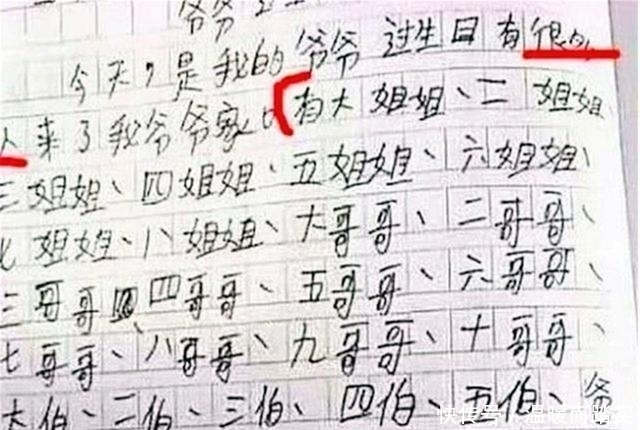 爷爷
今天,是我的爷爷过生日有很多
人来了我爷爷家。有大姐姐、二姐姐
三姐姐、四姐姐、五姐姐、六姐姐、
七姐姐、八姐姐、大哥哥、二哥哥、
三哥哥四哥哥、五哥哥、六哥哥、
七哥哥、八哥哥、九哥哥、十哥哥、
大伯、二伯、三伯、四伯、五伯、
快传号